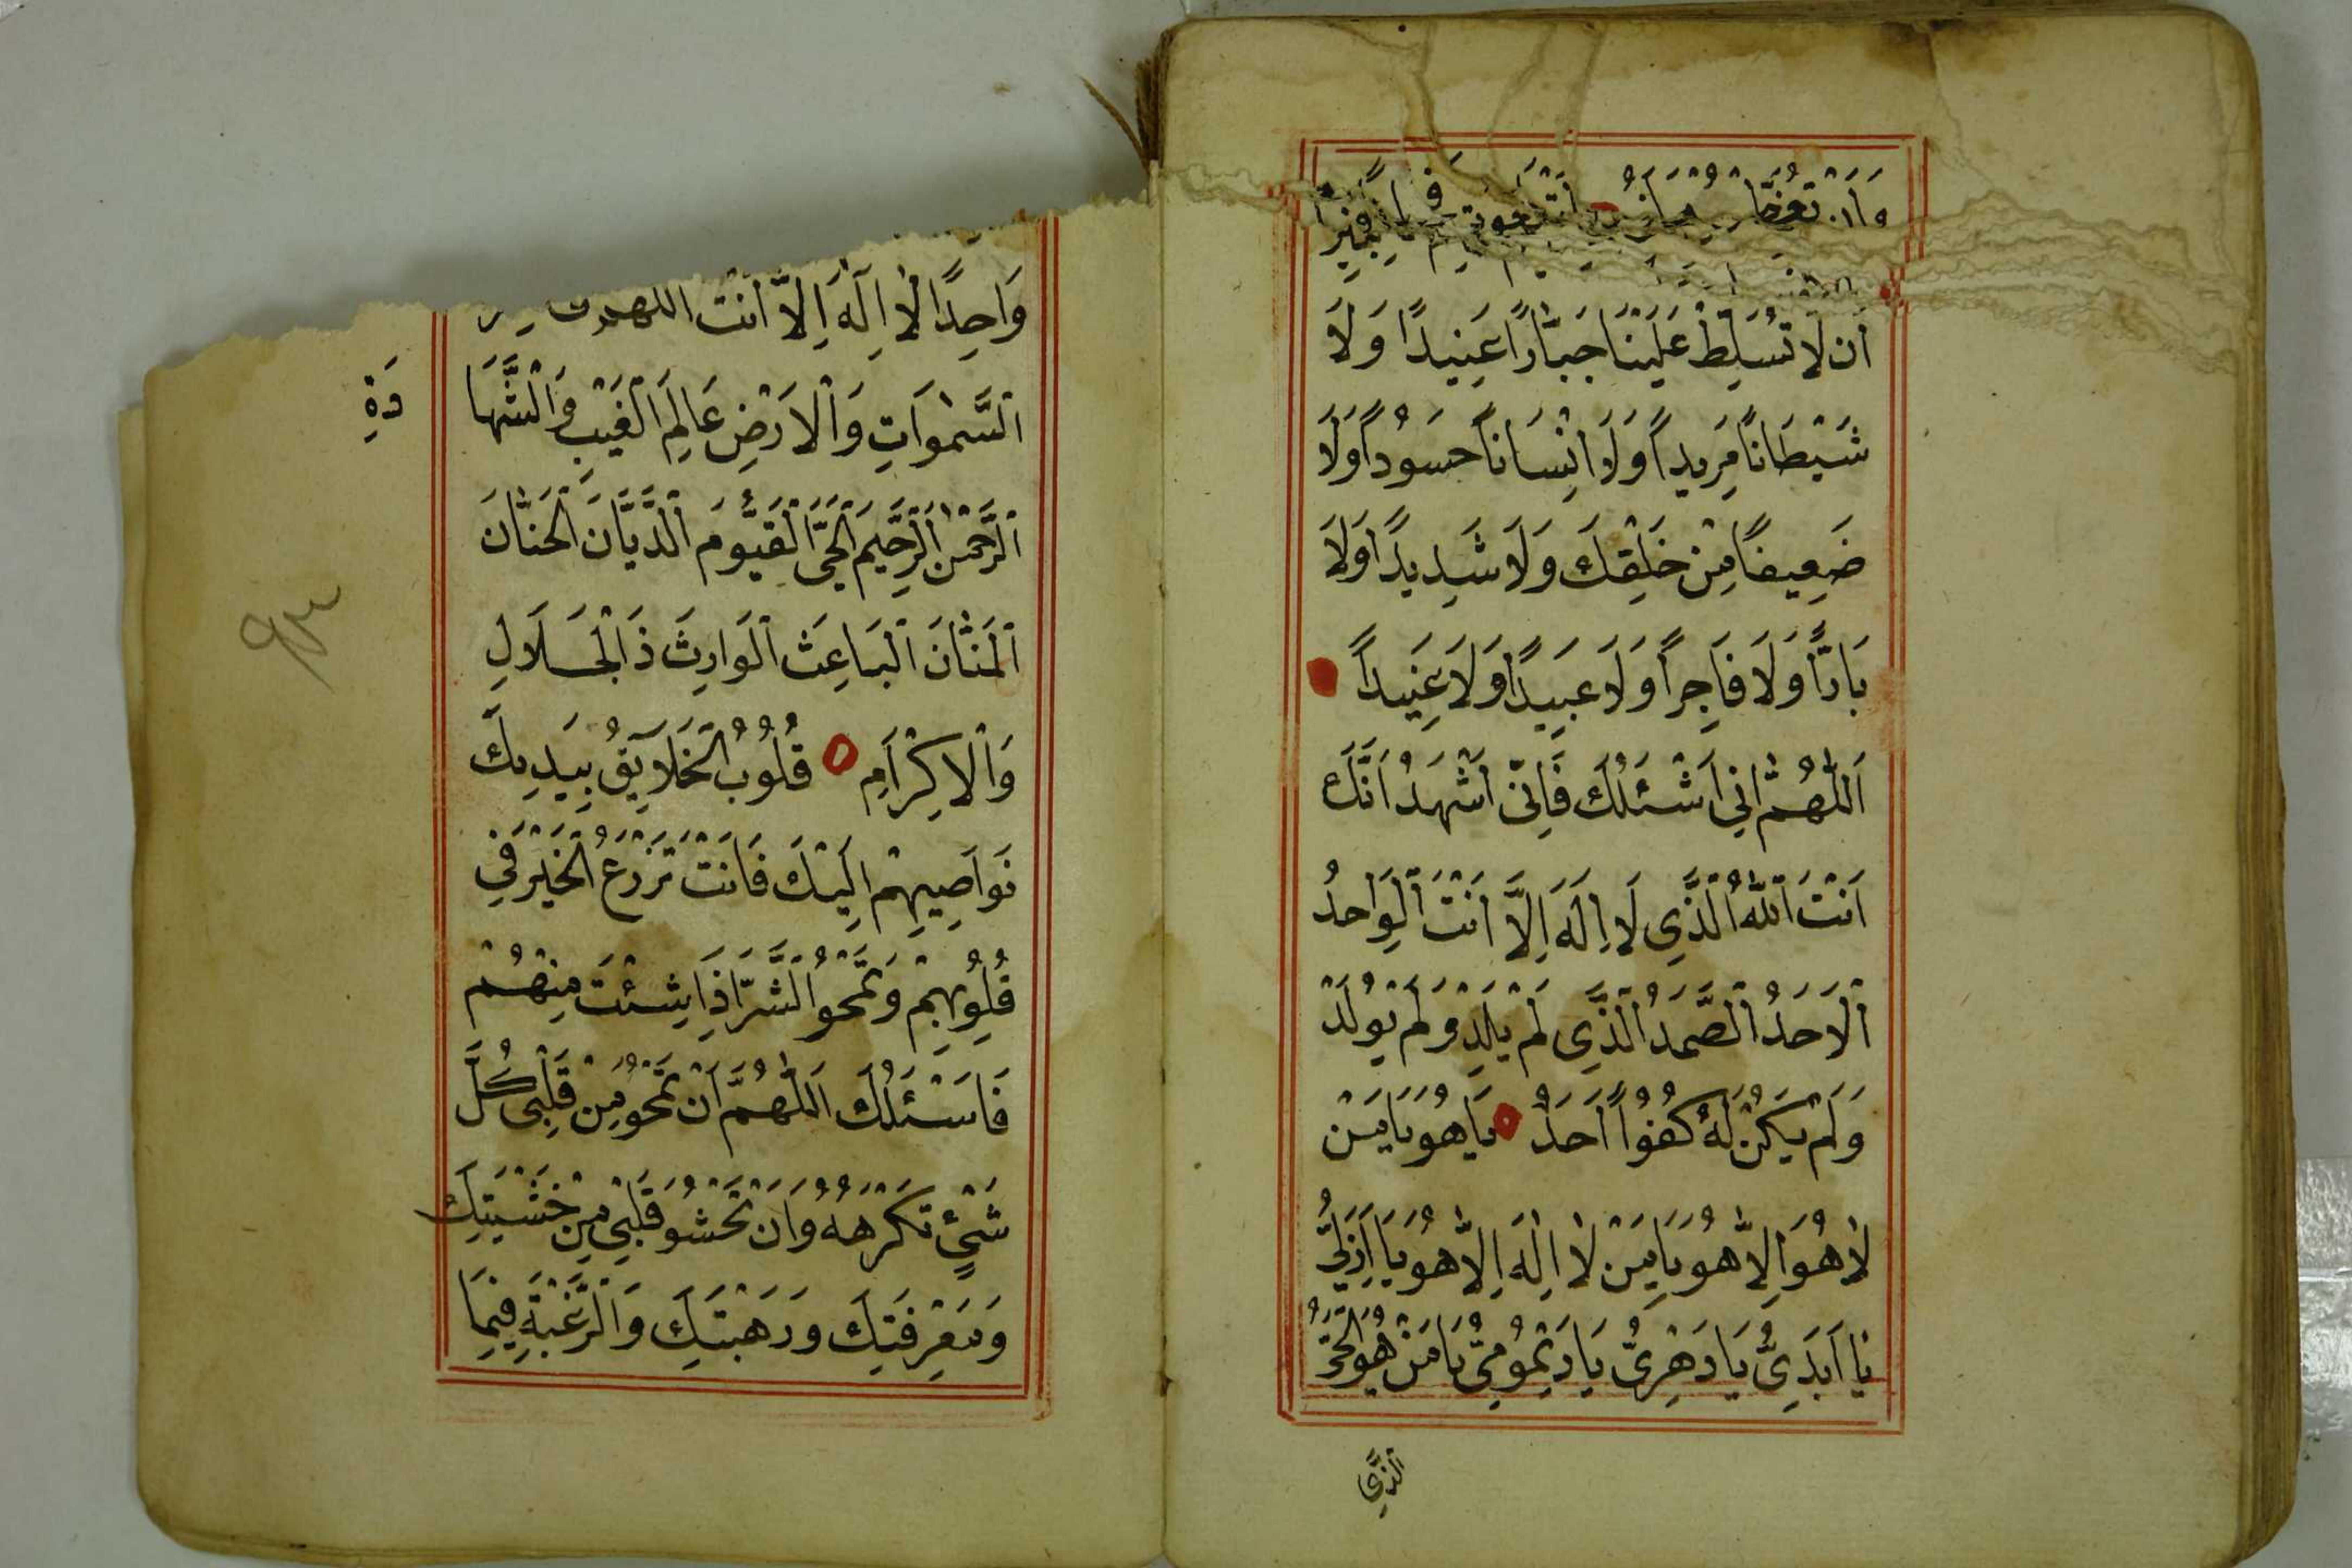 اَنْ لَا تُسَلِّطْ عَلَيْنَا جَبَّارًا عَنِيدًا وَلَا
شَيْطَانًا مَرِيدًا وَلَا اِنْسَانًا حَسُودًا وَلَا
ضَعِيفًا مِنْ خَلْقِكَ وَلَا شَدِيدًا وَلَا
بَارًّا وَلَا فَاجِرًا وَلَا عَبِيدًا وَلَا عَنِيدًا
اَللّٰهُمَّ اِنِّي اَسْئَلُكَ فَاِنِّي اَشْهَدُ اَنَّكَ
اَنْتَ اللّٰهُ الَّذِي لَا اِلَهَ اِلَّا اَنْتَ الْوَاحِدُ
الْاَحَدُ الصَّمَدُ الَّذِي لَمْ يَلِدْ وَلَمْ يُولَدْ
وَلَمْ يَكُنْ لَهُ كُفُوًا اَحَدٌ يَا هُوَ يَا مَنْ
لَا هُوَ اِلَّا هُوَ يَا مَنْ لَا اِلٰهَ اِلَّا هُوَ يَا اَزَلِيُّ
يَا اَبَدِيُّ يَا دَهْرِيُّ يَا دَيْمُومِيُّ يَا مَنْ هُوَ الْحَيُّ
الَّذِي
وَاحِدًا لَا اِلٰهَ اِلَّا اَنْتَ اللهم
السَّمٰوَاتِ وَالْاَرْضِ عَالِمَ الْغَيْبِ وَالشَّهَا
دَةِ
الرَّحْمٰنَ الرَّحِيمَ الْحَيَّ الْقَيُّومَ الدَّيَّانَ الْحَنَّانَ
الْمَنَّانَ الْبَاعِثَ الْوَارِثَ ذَا الْجَلَالِ
وَالْاِكْرَامِ قُلُوبُ الْخَلَايِقُ بِيَدِيكَ
نَوَاصِيهِمْ اِلَيْكَ فَاَنْتَ تَزْرَعُ الْخَيْرَ فِي
قُلُوبِهِمْ وَتَمْحُو الشَّرَّ اِذَا شِئْتَ مِنْهُمْ
فَاَسْئَلُكَ اَللّٰهُمَّ اَنْ تَمْحُوَ مِنْ قَلْبِي كُلَّ
شَيْءٍ تَكْرَهُهُ وَاَنْ تَحْشُوَ قَلْبِي مِنْ خَشْيَتِكَ
وَمَعْرِفَتِكَ وَرَهْبَتِكَ وَالرَّغْبَةِ فِيمَا